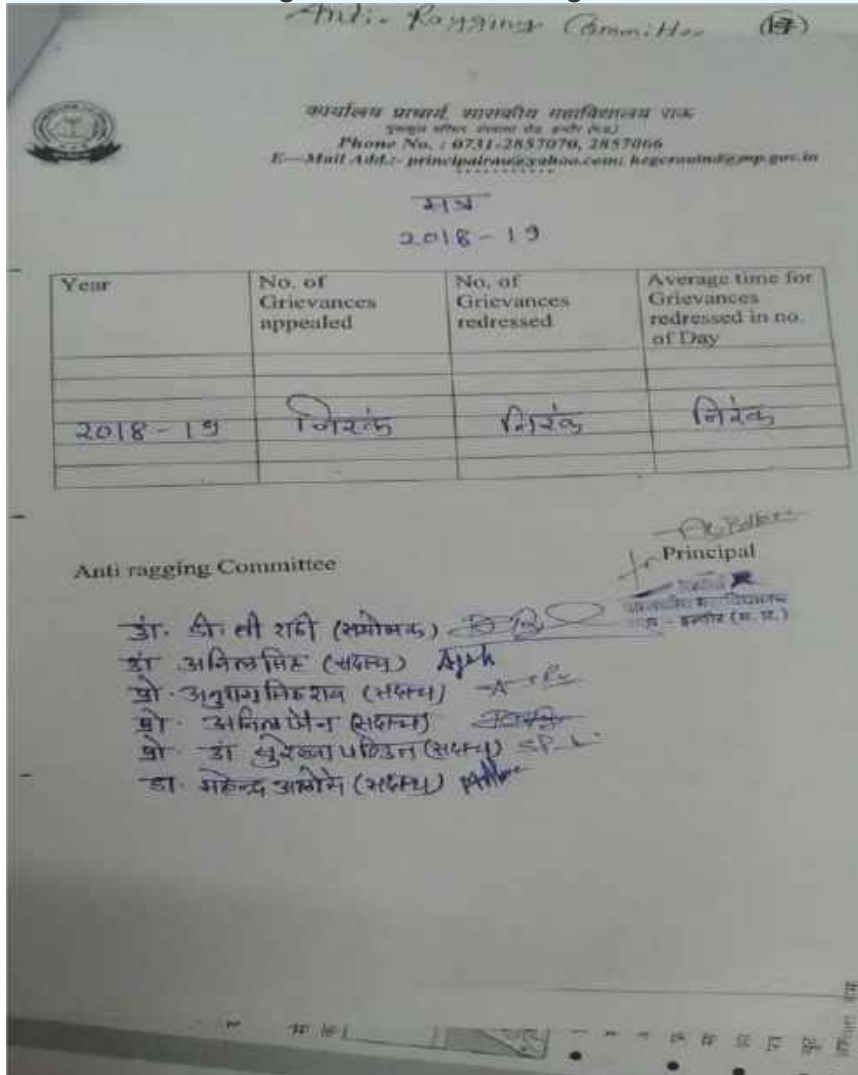 Anti-Ragging Committee (17)
कार्यालय प्राचार्य, शासकीय महाविद्यालय राऊ
Phone No. : 0731-2857070, 2857066
E—Mail Add.:- principalrau@yahoo.com; hegcrauind@mp.gov.in
सत्र
2018-19
Year No. of Grievances appealed No. of Grievances redressed Average time for Grievances redressed in no. of Day
2018-19 निरंक निरंक निरंक
for Principal
Anti ragging Committee
डॉ. डी. सी राठी (संयोजक)
डॉ अनिल सिंह (सदस्य)
प्रो. (सदस्य)
प्रो. अनिल जैन (सदस्य)
प्रो. डॉ सुरेखा (सदस्य)
डॉ. महेन्द्र (सदस्य)